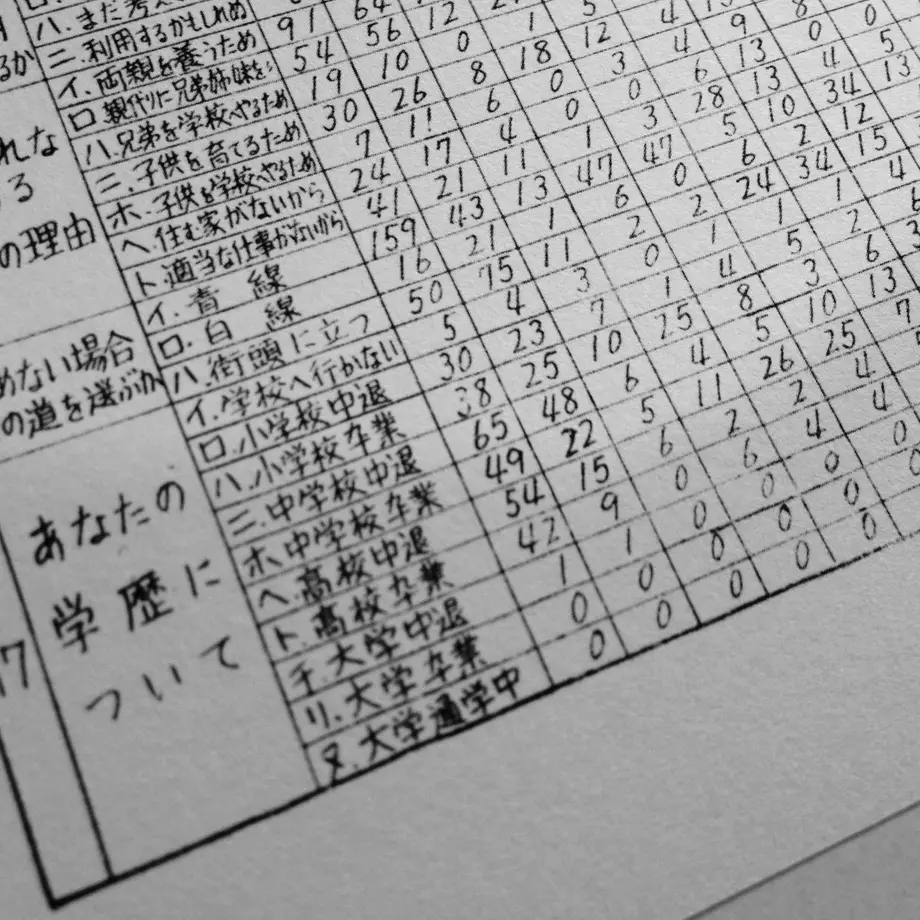 ハ.まだ考え
ニ.利用するかもしれぬ
るか
イ.両親を養うため 91 64 12
ロ.親代りに兄弟姉妹を 54 56 0 1 5
ハ.兄弟を学校へやるため 19 10 8 18 12 4
れな
ニ.子供を育てるため 30 26 6 0 3 4 9 8
る
ホ.子供を学校へやるため 7 11 4 0 0 6 13 0 0
の理由
ヘ.住む家がないから 24 17 11 1 3 28 13 4 5
ト.適当な仕事がないから 41 21 13 47 47 5 10 34 13
イ.青線 159 43 1 6 0 6 2 12
めない場合
ロ.白線 16 21 11 2 2 24 34 15
の道を選ぶか
ハ.街頭に立つ 50 75 3 0 1 1 1
17
あなたの
学歴に
ついて
イ.学校へ行かない 5 4 7 1 4 5 2
ロ.小学校中退 30 23 10 25 8 3 6
ハ.小学校卒業 38 25 6 4 5 10 13
ニ.中学校中退 65 48 5 11 26 25 7
ホ.中学校卒業 49 22 6 2 2 4
ヘ.高校中退 54 15 0 6 4 4
ト.高校卒業 42 9 0 0 0 0
チ.大学中退 1 1 0 0 0
リ.大学卒業 0 0 0 0 0
ヌ.大学通学中 0